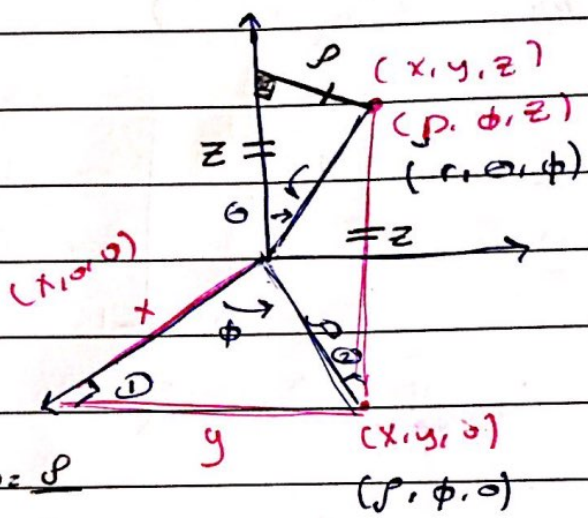 ρ
(x, y, z)
(ρ, ϕ, z)
z
(r, θ, ϕ)
θ
= z
(x, 0, 0)
x
ϕ
ρ
②
①
y
(x, y, 0)
= ρ
(ρ, ϕ, 0)